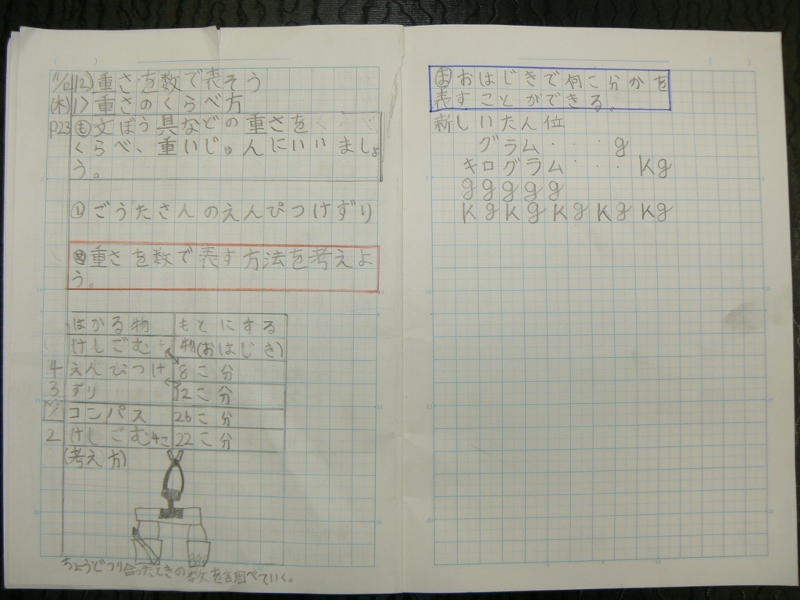 12)重さを数で表そう
(木) 1>重さのくらべ方
P23 も 文ぼう具などの重さを
くらべ、重いじゅんにいいましょ
う。
① ごうたさんのえんぴつけずり
重さを数で表す方法を考えよ
う。
はかる物 もとにする
けしごむ 物(おはじき)
4 えんぴつけ 8こ分
3 ずり 12こ分
1 コンパス 26こ分
2 けしごむ4こ 22こ分
(考え方)
ちょうどつり合ったときの数を調べていく。
ま おはじきで何こ分かを
表すことができる。
新しいたん位
グラム・・・g
キログラム・・・kg
ggggg
kgkgkgkgkg